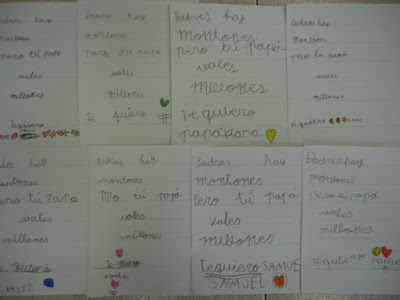 Padres hay
montones
pero tú papá
vales
millones
te quiero
Padres hay
montones
pero tú papá
vales
millones
Te quiero
Padres hay
montones
pero tú papá
vales
millones
te quiero
papá para
Padres hay
montones
pero tú papá
vales
millones
te quiero
hay
montones
pero tú papa
vales
millones
Padres hay
montones
Pero tú papá
vales
millones
Te quiero
Padres hay
montones
Pero tú papá
vales
millones
Te quiero SAMUEL
SAMUEL
Padres hay
montones
pero tú papá
vales
millones
te quiero